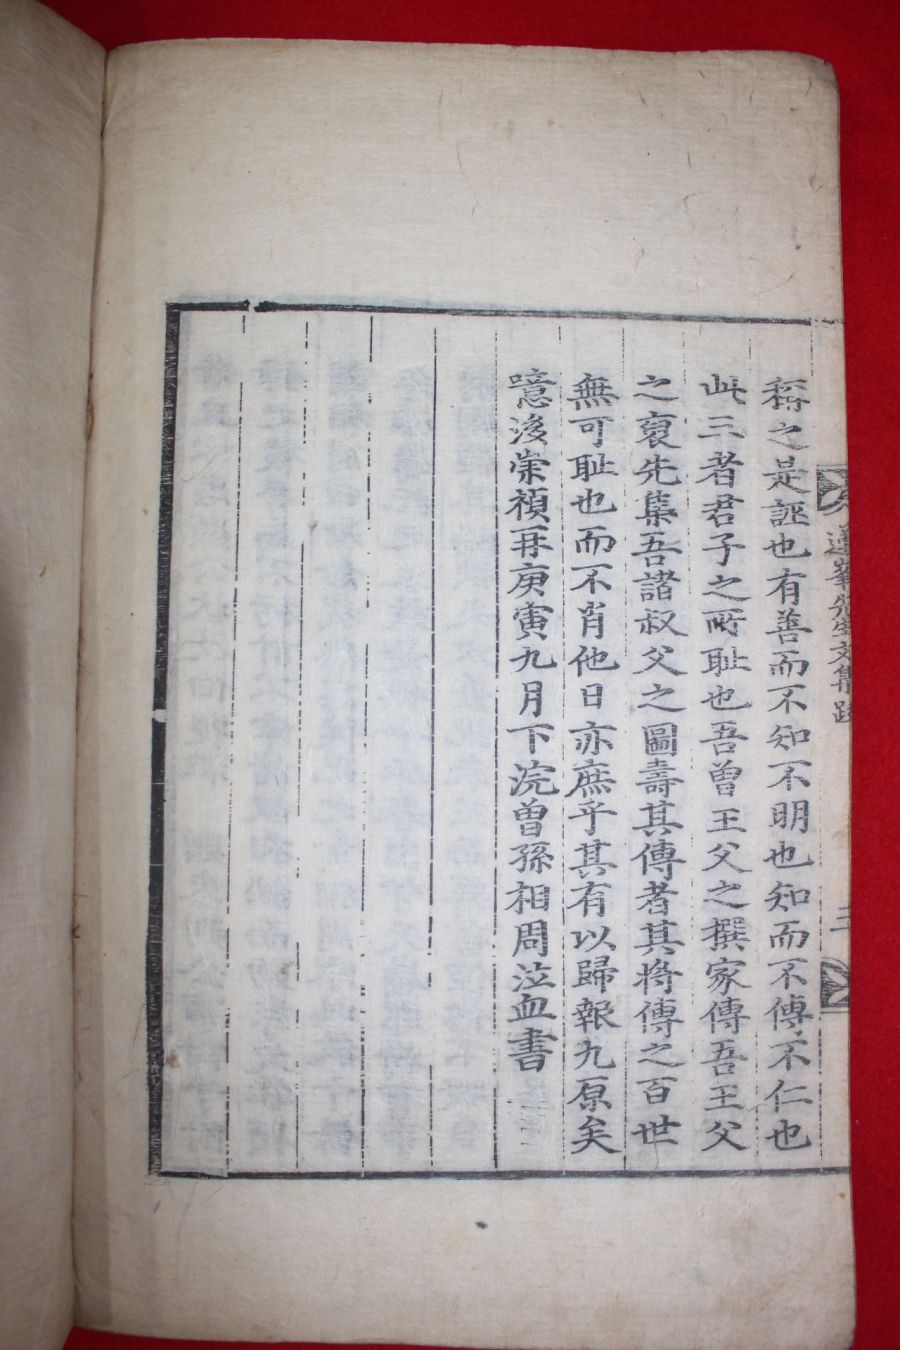 稱之是誣也有善而不知不明也知而不傳不仁也
此三者君子之所耻也吾曾王父之撰家傳吾王父
之裒先集吾諸叔父之圖壽其傳者其將傳之百世
無可耻也而不肖他日亦庶乎其有以歸報九原矣
噫後崇禎再庚寅九月下浣曾孫相周泣血書
峯先生文集跋
三